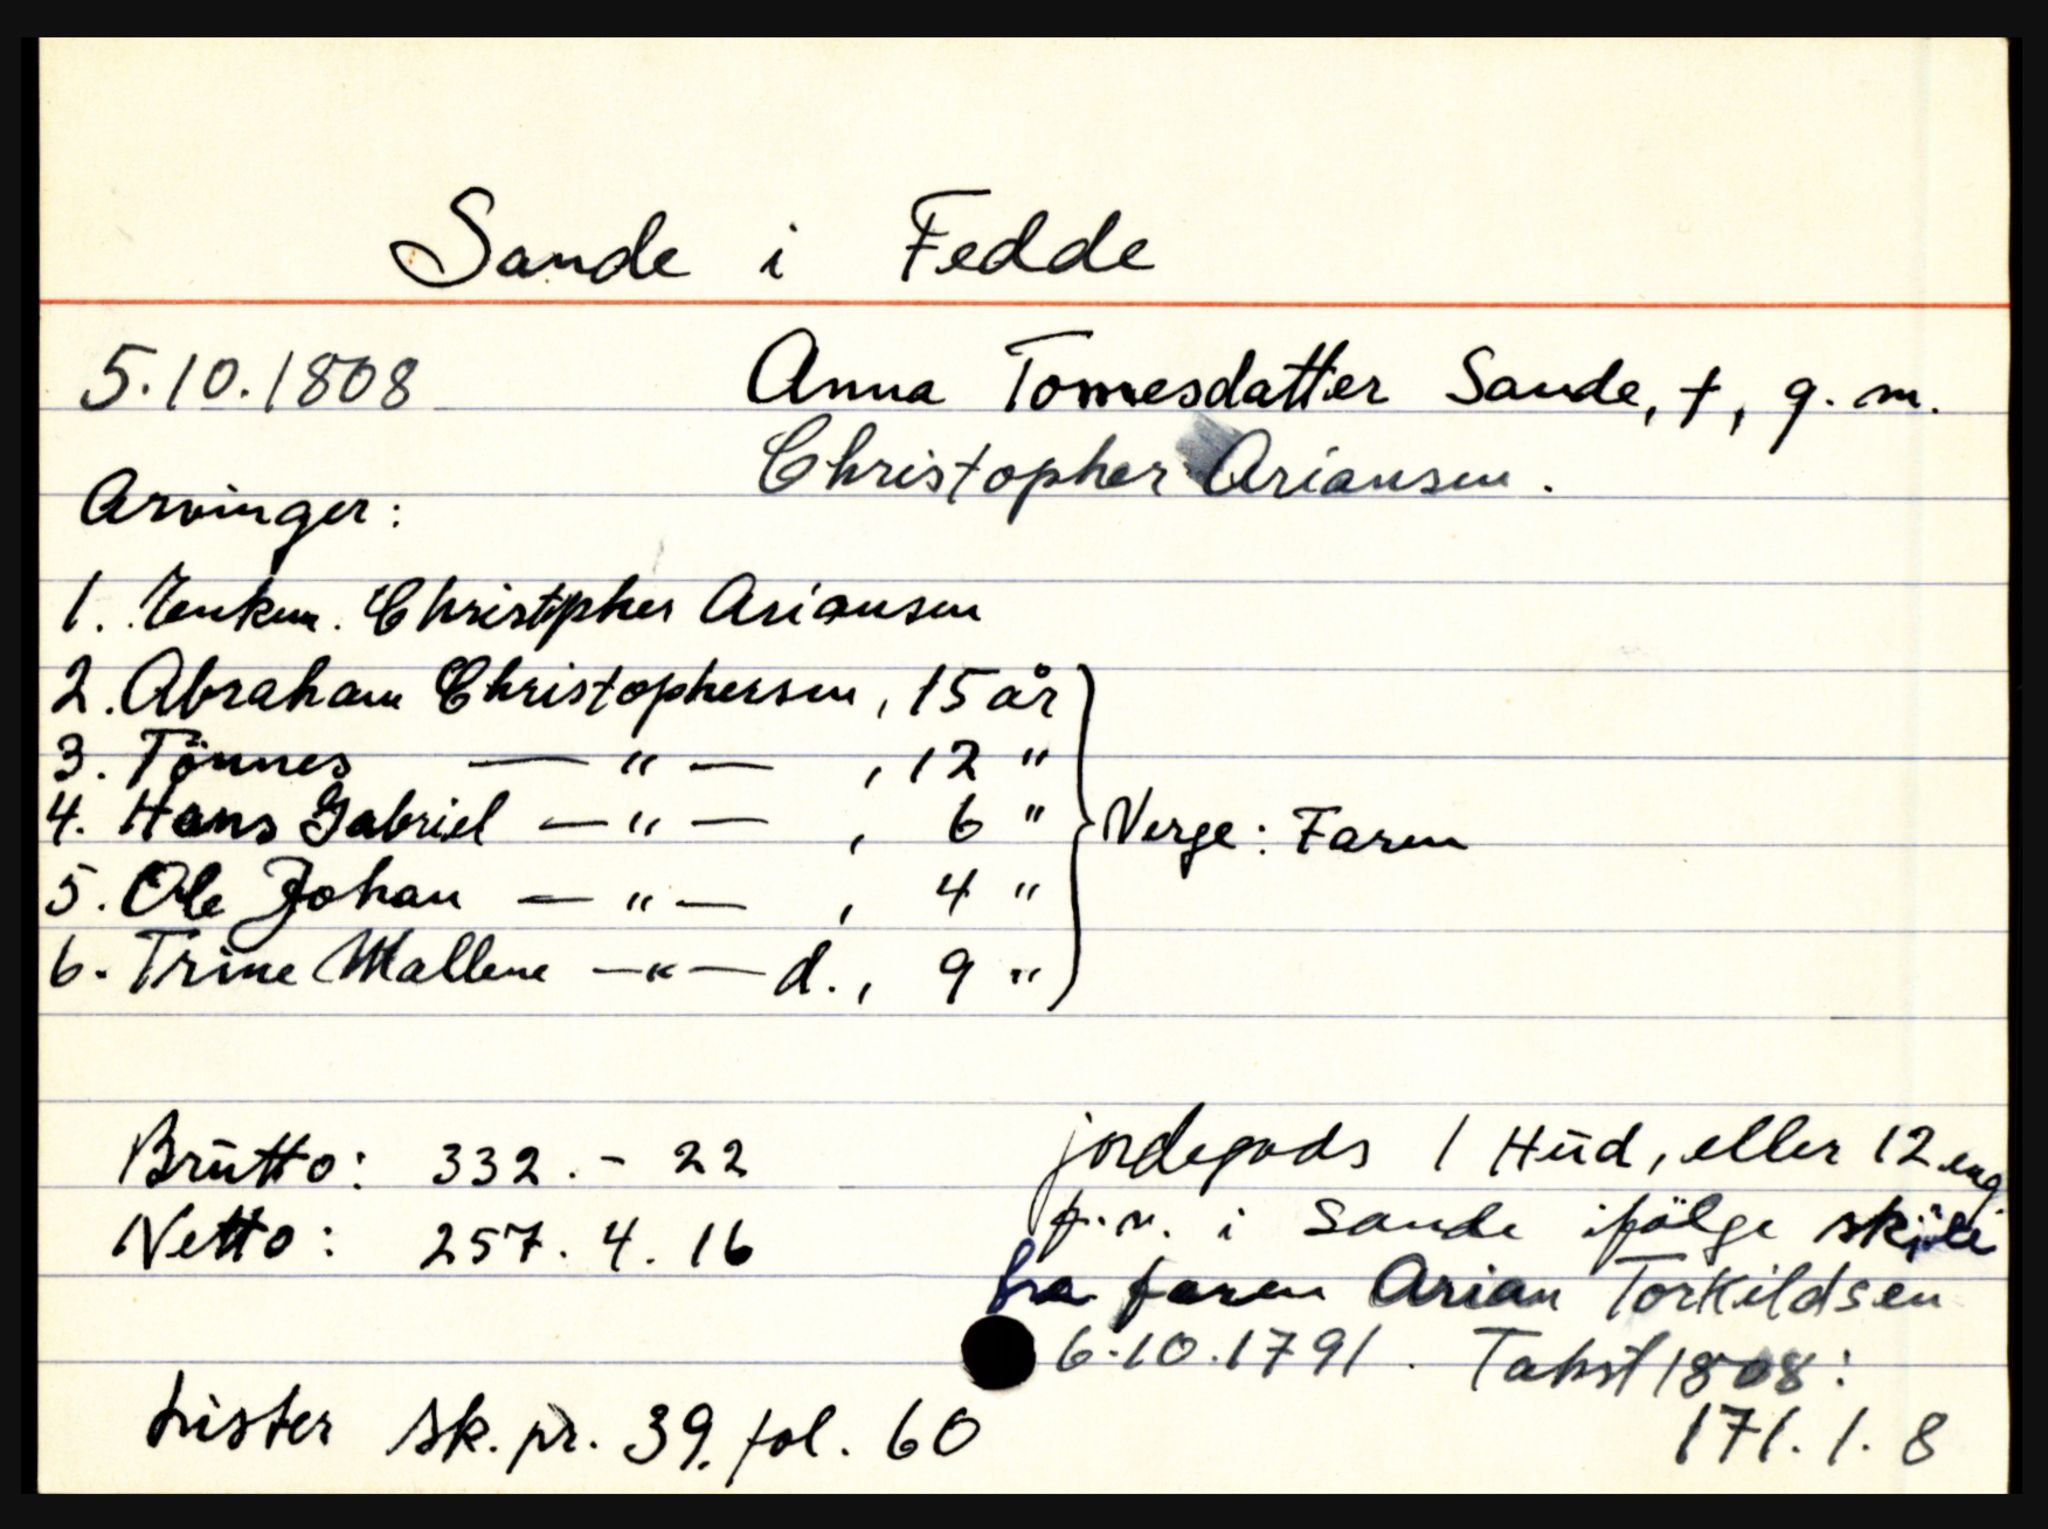 Sande i Fedde
5.10.1808 Anna Tomesdatter Sande, †, g. m.
Christopher Ariansen.
Arvinger:
1. Enkem. Christopher Ariansen
2. Abraham Christophersen, 15 år
3. Tönnes — " — , 12 "
4. Hans Gabriel — " — , 6 "
5. Ole Johan — " — , 4 "
6. Trine Mallene — " — d., 9 "
Verge: Faren
Brutto: 332. - 22
Netto: 257. 4. 16
jordegods 1 Hud, eller 12 eng.
p.v. i Sande ifölge skjöte
fra faren Arian Torkildsen
6.10.1791. Takst 1808:
171. 1. 8
Lister sk. pr. 39. fol. 60